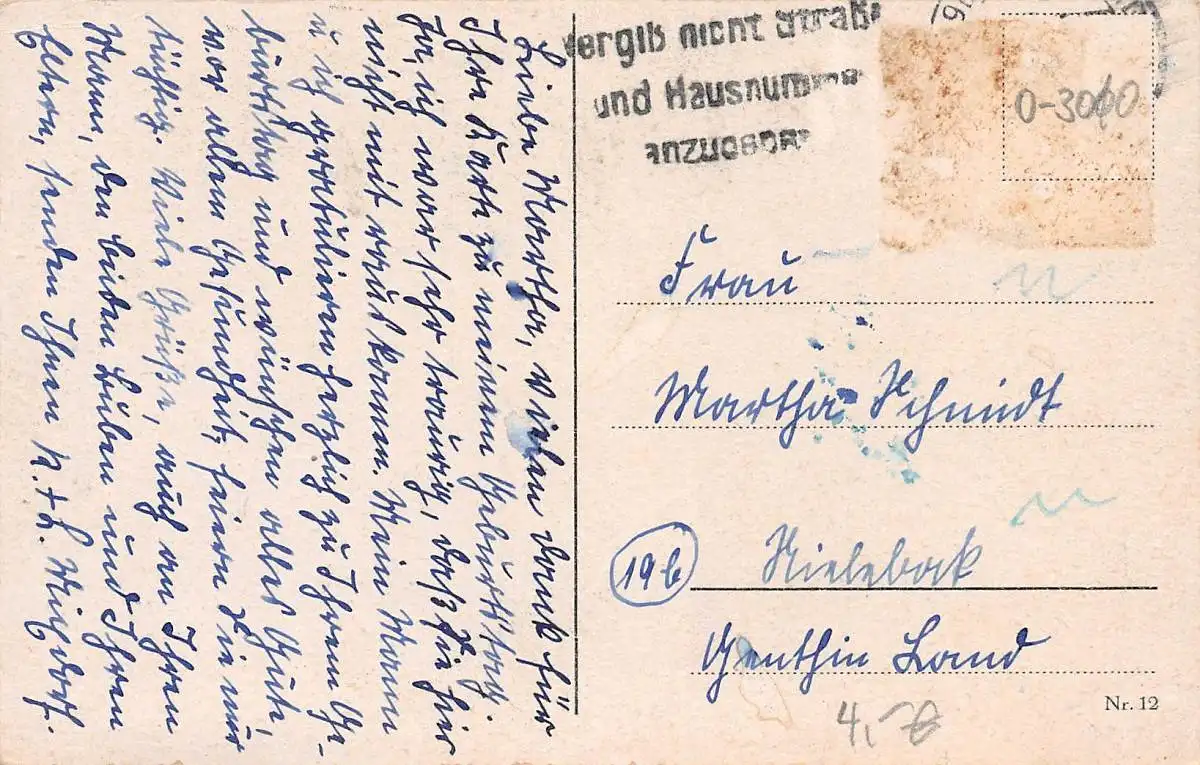 Liebe Martha, vielen Dank für
Ihre Karte zu meinem Geburtstag.
Ja, ich war sehr traurig, daß Sie hier
nicht mit rauskamen. Mein Mann
u. ich gratulieren herzlich zu Ihrem Ge-
burtstag und wünschen alles Gute,
vor allem Gesundheit, feiern Sie nur
tüchtig. Viele Grüße, auch an Ihren
Mann, den beiden Buben und Ihren
Eltern, senden Ihnen
Vergiß nicht Straße
und Hausnummer
anzugeben
0-3000
Frau
Martha Schmidt
19b
Nielebock
Genthin Land
Nr. 12